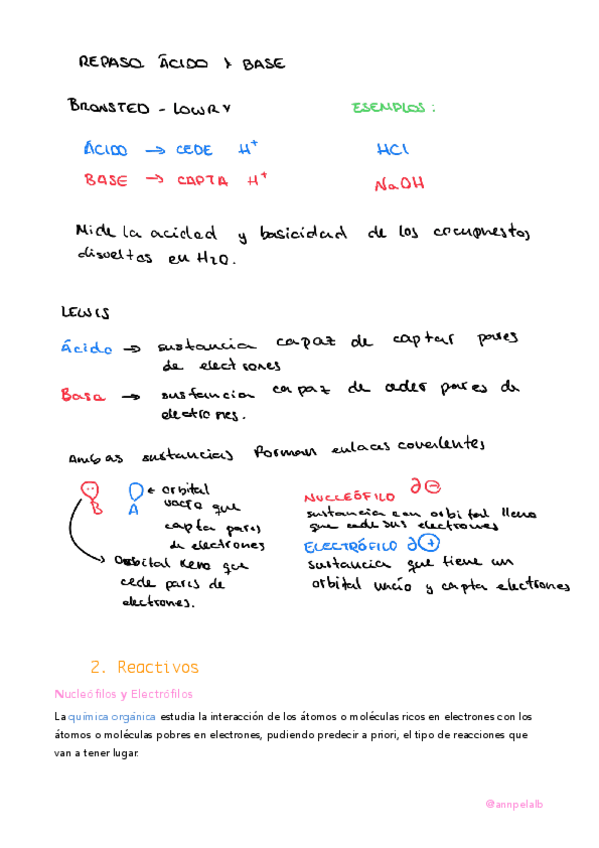 REPASO ÁCIDO Y BASE
BRONSTED - LOWRY
ESEMPLOS:
ÁCIDO → CEDE H⁺
HCl
BASE → CAPTA H⁺
NaOH
Mide la acidad y basicidad de los compuestos
disueltos en H₂O.
LEWIS
Ácido → sustancia capaz de captar pares
de electrones
Base → sustancia capaz de ceder pares de
electrones.
Ambas sustancias forman enlaces covalentes
B
A
← orbital
vacío que
capta pares
de electrones
Orbital lleno que
cede pares de
electrones.
NUCLEÓFILO ∂⊖
sustancia con orbital lleno
que cede sus electrones
ELECTRÓFILO ∂⊕
sustancia que tiene un
orbital vacío y capta electrones
2. Reactivos
Nucleófilos y Electrófilos
La química orgánica estudia la interacción de los átomos o moléculas ricos en electrones con los
átomos o moléculas pobres en electrones, pudiendo predecir a priori, el tipo de reacciones que
van a tener lugar.
@annpelalb